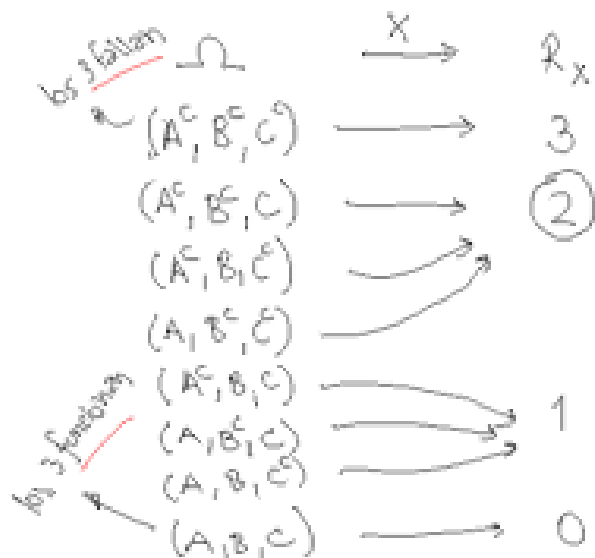 los 3 fallan Ω X R_X
(A^c, B^c, C^c) 3
(A^c, B^c, C) 2
(A^c, B, C^c)
(A, B^c, C^c)
(A^c, B, C)
(A, B^c, C) 1
(A, B, C^c)
los 3 funcionan
(A, B, C) 0